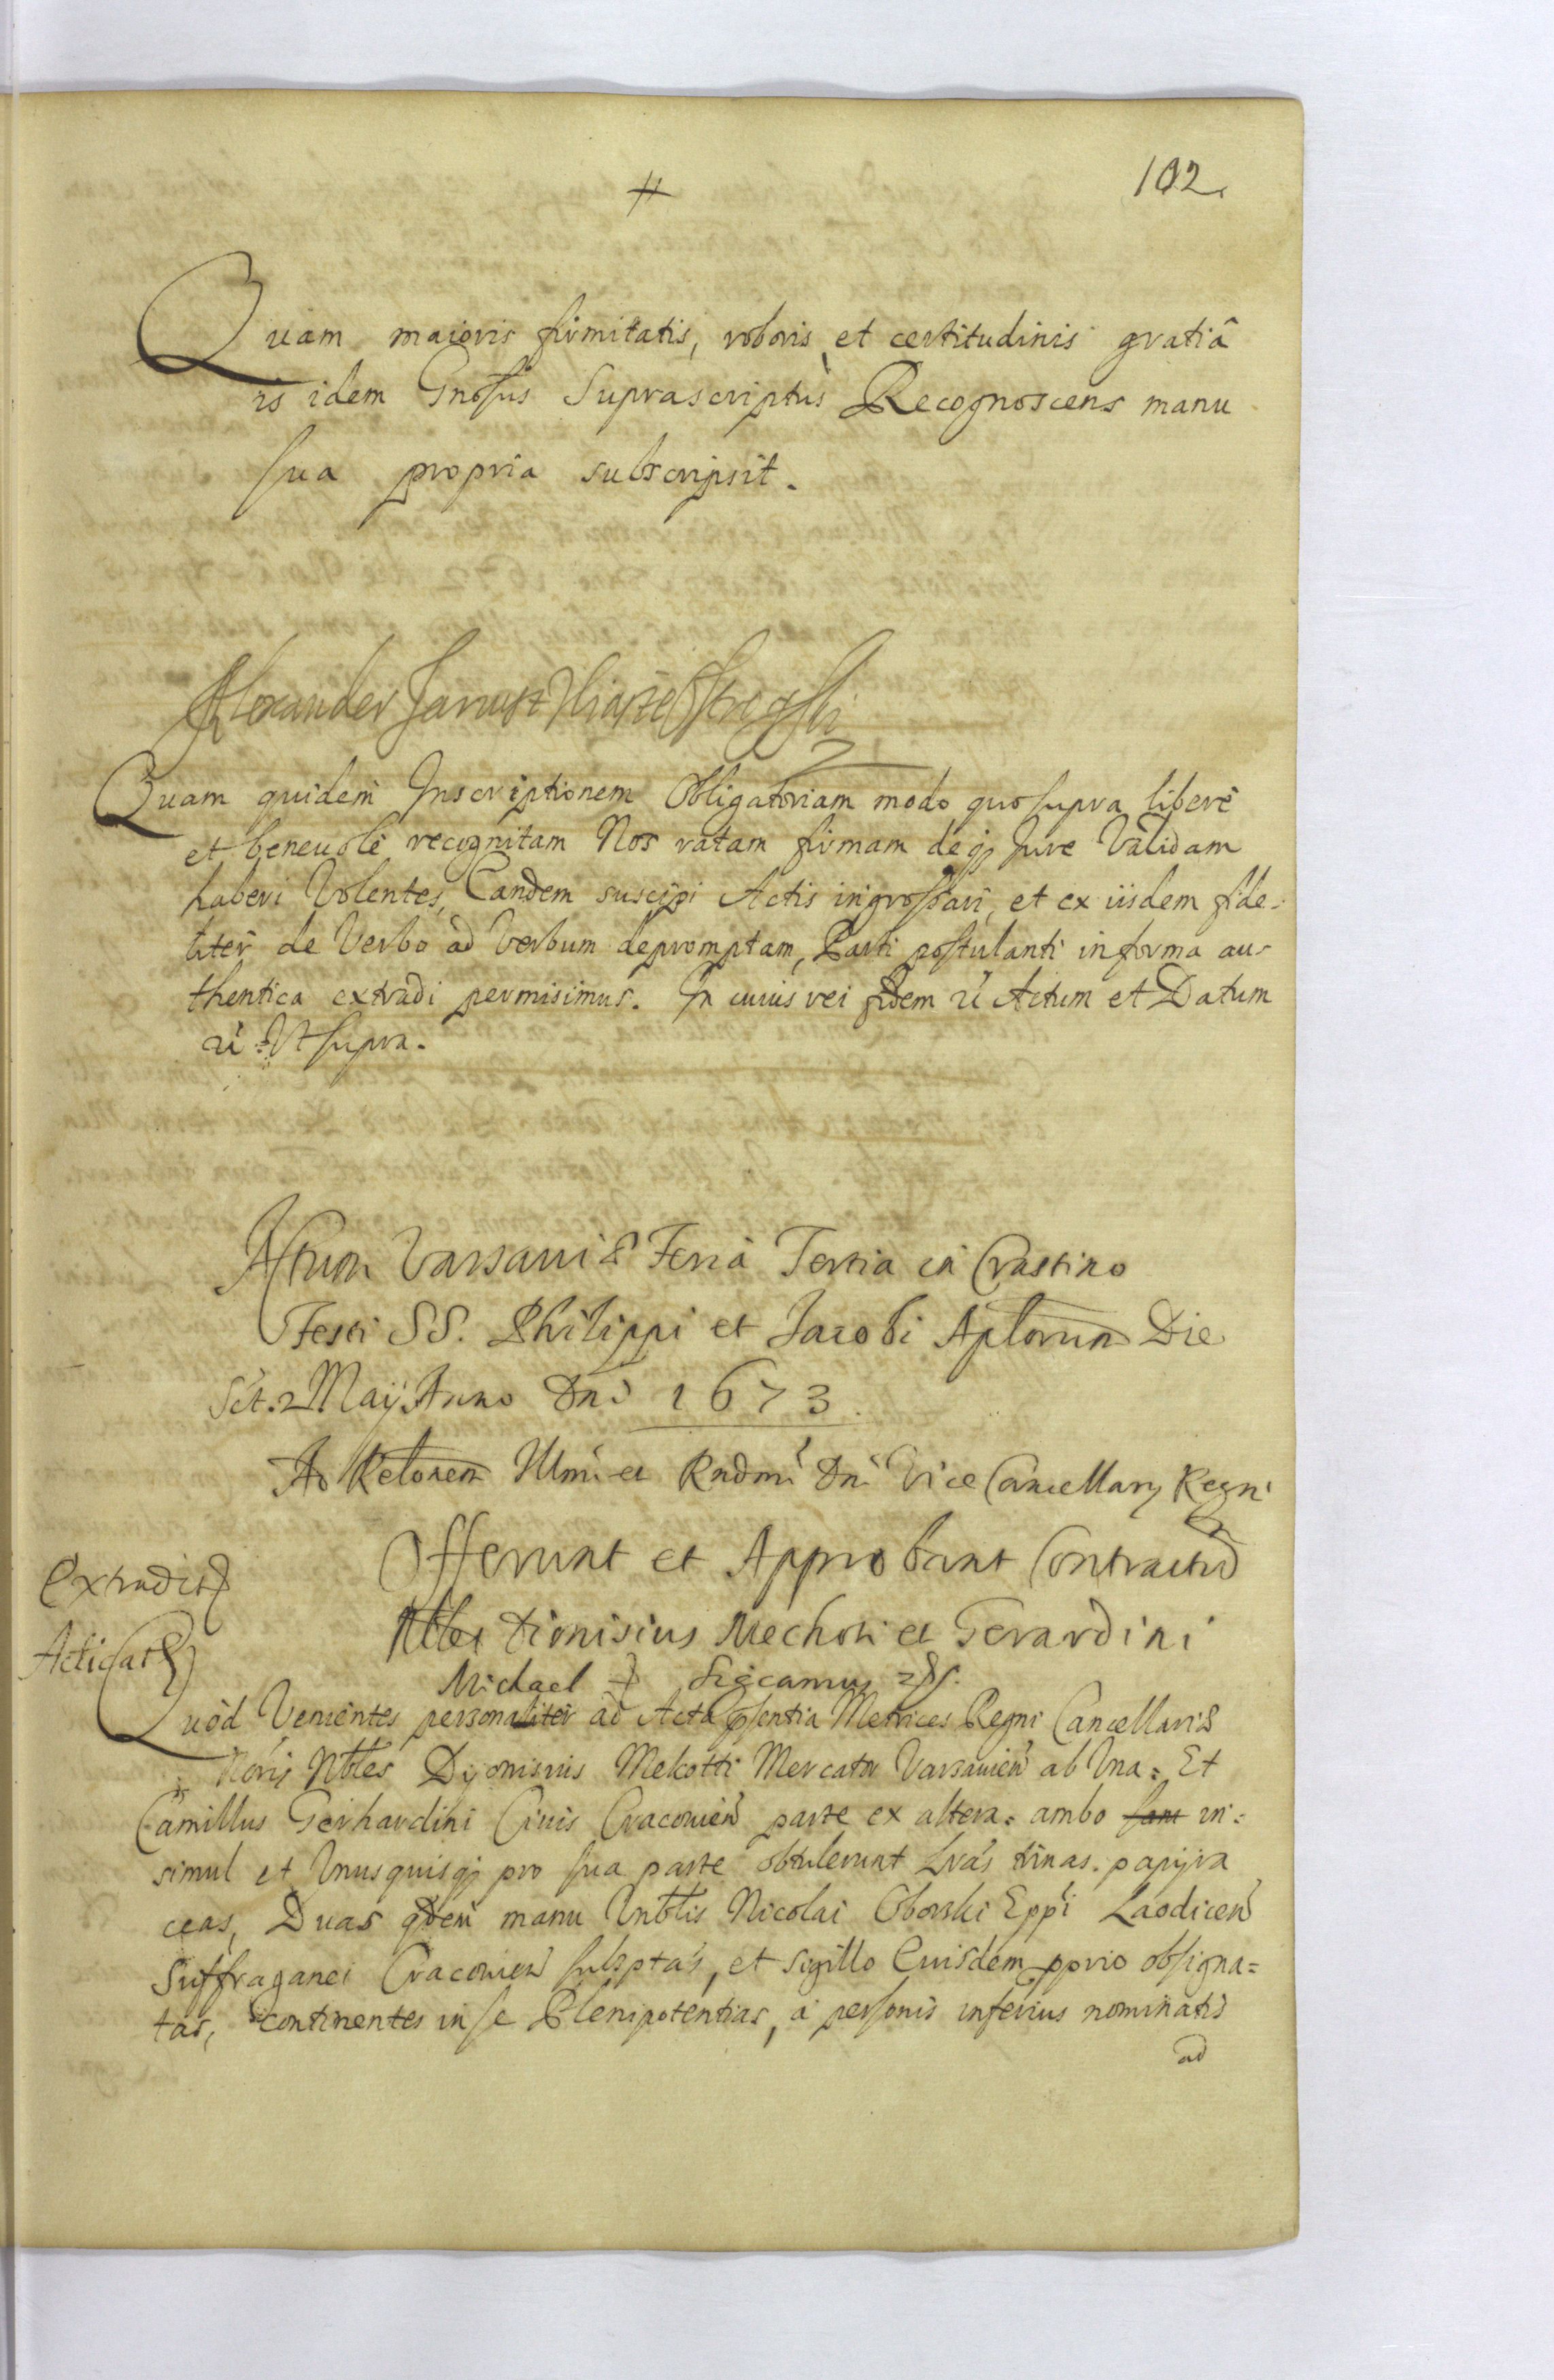 102.
Quam maioris firmitatis, roboris et certitudinis gratiâ
is idem Gnosus Suprascriptus Recognoscens manu
sua propria subscripsit.
Alexander Janusz
Quam quidem Inscriptionem Obligatoriam modo quo supra liberè
et beneuolè recognitam Nos ratam firmam deqz Jure Validam
haberi Volentes, Eandem suscipi Actis ingrossari, et ex iisdem fide-
liter de Verbo ad Verbum depromptam, Parti postulanti in forma au-
thentica extradi permisimus. In cuius rei fidem Actum et Datum
Ut supra.
Actum Varsauiæ Feria Tertia in Crastino
Festi SS. Philippi et Jacobi Aplorum Die
Sct. 2 Maÿ Anno Dni 1673.
Ad Relonem Illmi et Rndmi Dni Vice Cancellarÿ Regni
Offerunt et Approbant Contractũ
Nbles Dionisius Mechoti et Gerardini
Extradit
Michael
Quòd Venientes personaliter ad Acta pssentia Metrices Regni Cancellariæ
Noris Nbles Dyonisius Mekotti Mercator Varsauien ab Una = Et
Camillus Gerhardini Ciuis Cracouien parte ex altera = ambo in=
simul et Unusquisqz pro sua parte obtulerunt Lras trinas papyra
ceas, Duas qdem manu Nicolai Oborski Eppi Laodicen
Suffraganei Cracouien subsptas, et sigillo Euisdem pprio obsigna=
tas, continentes in se Plenipotentias, à personis inferius nominatis
ad